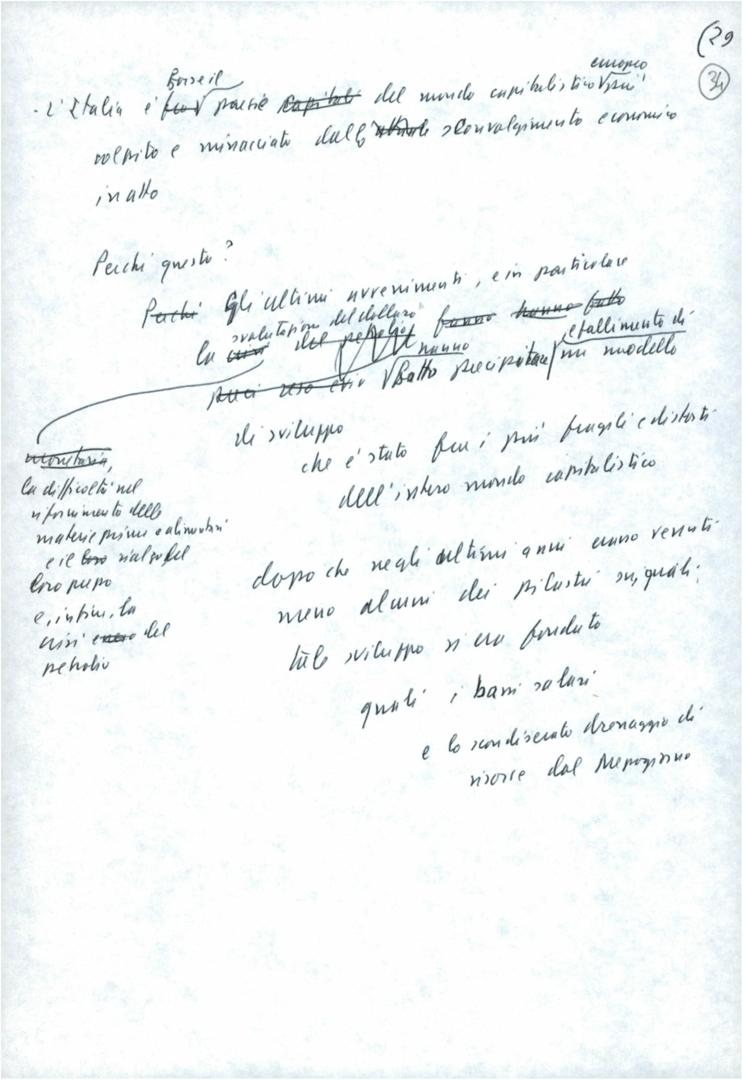 (29
34
europeo
Forse il
- L'Italia è paese del mondo capitalistico più
colpito e minacciato dallo sconvolgimento economico
in atto
Perché questo?
Perché Gli ultimi avvenimenti, e in particolare
svalutazione del dollaro
la crisi del petrolio hanno fatto
hanno e fallimento di
reso fatto precipitare un modello
di sviluppo
che è stato fra i più fragili e distorti
dell'intero mondo capitalistico
monetaria,
la difficoltà nel
rifornimento delle
materie prime e alimentari
e il loro rialzo del
loro prezzo
e, infine, la
crisi del
petrolio
dopo che negli ultimi anni erano venuti
meno alcuni dei pilastri sui quali
tale sviluppo si era fondato
quali i bassi salari
e lo scondiserato drenaggio di
risorse dal Mezzogiorno